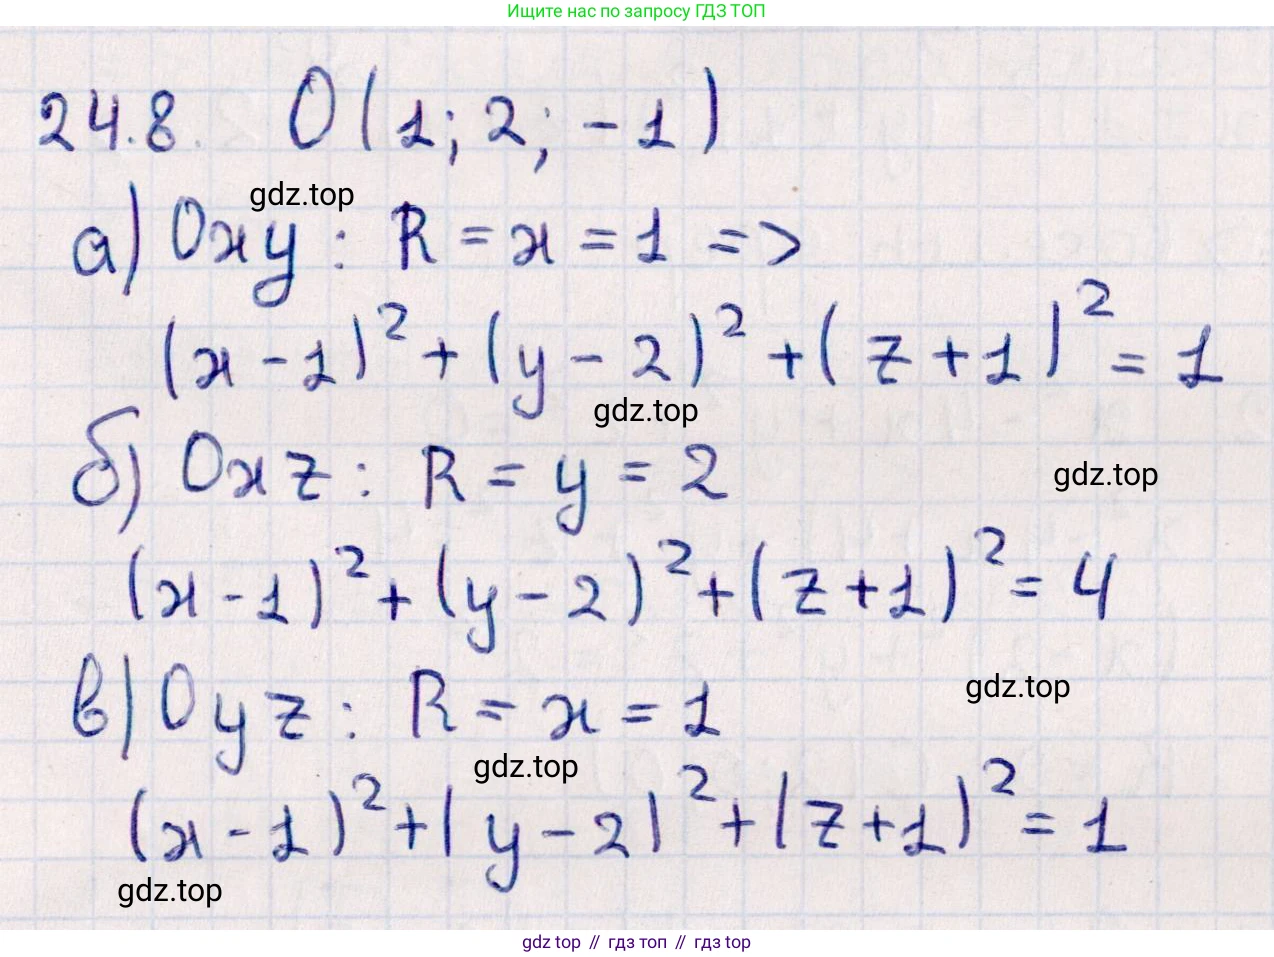 Ищите нас по запросу ГДЗ ТОП
24.8. O(1; 2; -1)
gdz.top
а) Oxy: R = x = 1 =>
(x - 1)² + (y - 2)² + (z + 1)² = 1
gdz.top
б) Oxz: R = y = 2
gdz.top
(x - 1)² + (y - 2)² + (z + 1)² = 4
в) Oyz: R = x = 1
gdz.top
gdz.top
(x - 1)² + (y - 2)² + (z + 1)² = 1
gdz.top
gdz top // гдз топ // гдз top